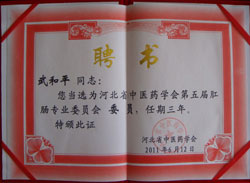 聘书
武和平 同志：
您当选为河北省中医药学会第五届肛
肠专业委员会 委员，任期三年。
特颁此证
河北省中医药学会
2011年6月12日